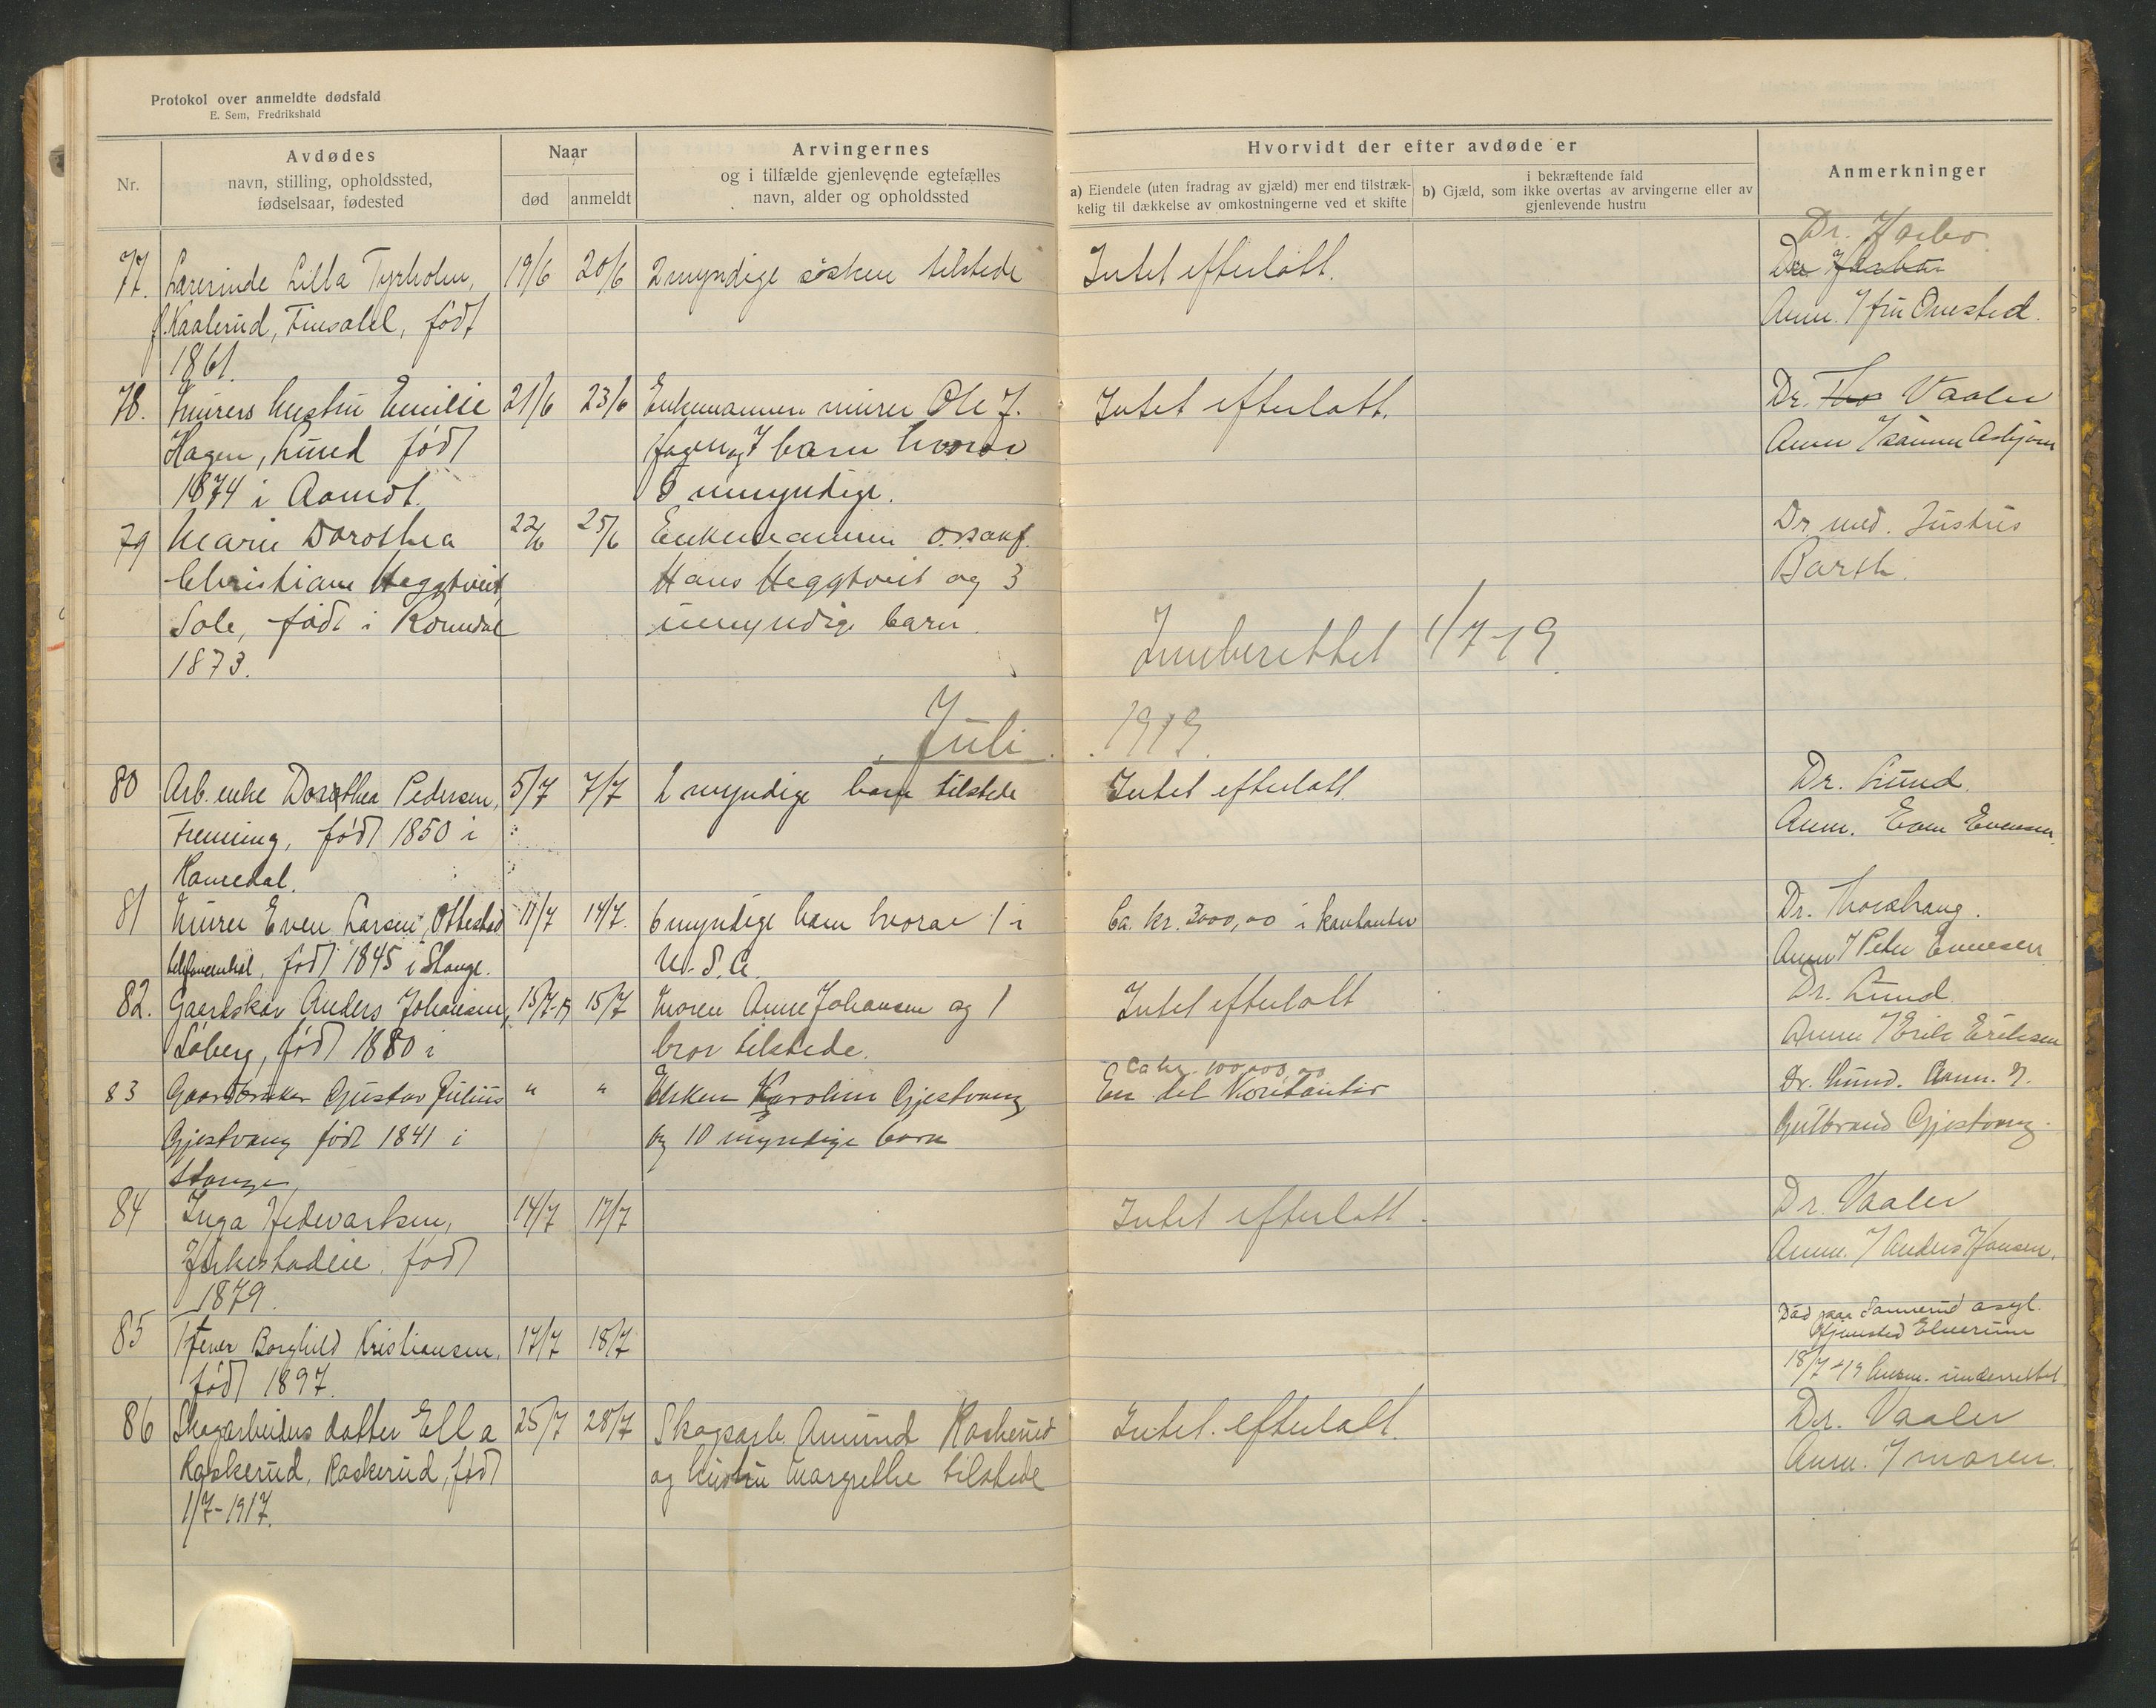 Protokol over anmeldte dødsfald
E. Sem, Fredrikshald
Nr.
Avdødes
navn, stilling, opholdssted,
fødselsaar, fødested
Naar
død
anmeldt
Arvingernes
og i tilfælde gjenlevende egtefælles
navn, alder og opholdssted
Hvorvidt der efter avdøde er
a) Eiendele (uten fradrag av gjæld) mer end tilstræk-
kelig til dækkelse av omkostningerne ved et skifte
i bekræftende fald
b) Gjæld, som ikke overtas av arvingerne eller av
gjenlevende hustru
Anmerkninger
Dr. Harbo
77. Lærerinde Lilla Tyrholm, 19/6 20/6 2 myndige søsken tilstede Intet efterlatt. Dr. Harbo
f. Kaalerud, Finsalel, født Anm. Omsted.
1861.
78. Murers hustru Emilie 21/6 23/6 Enkemannen murer Ole J. Intet efterlatt. Dr. Tho Vaaler
Hagen, Lund født Hagen og 7 barn hvorav Anm
1874 i Aamot. 6 umyndige.
79 Marie Dorothea 22/6 25/6 Enkemannen Dr. med. Justus
Christiane Heggtveit, Hans Heggtveit og 3 Barth.
Sole, født i Romedal umyndige barn.
1873. Innberettet 1/7-19.
Juli 1919.
80 Arb. enke Dorothea Pedersen, 5/7 7/7 2 myndige barn tilstede Intet efterlatt. Dr. Lund.
født 1850 i Anm. Even Evensen.
Romedal.
81 Murer Even Larsen, Ottestad 11/7 14/7. 6 myndige barn hvorav 1 i Ca. kr. 3000,00 i kontanter Dr. Thorshaug.
født 1845 i Stange. U.S.A. Anm / Peter Evensen
82. Gaardskar Anders Johansen, 15/7-19 15/7 Moren Anne Johansen og 1 Intet efterlatt Dr. Lund
Løberg, født 1880 i bror tilstede. Anm / Erik Eriksen
Ca kr. 100000,00
83 Gaardbruker Gustav Julius " " Enken Karoline Gjestvang En del kontanter Dr. Lund. Anm. /
Gjestvang født 1841 i og 10 myndige barn Gulbrand Gjestvang.
Stange,
84 Inga Hedevartsen, 14/7 17/7 Intet efterlatt. Dr. Vaaler
født Anm. / Anders Hansen.
1879.
Død paa Sannerud asyl.
85 Borghild Kristiansen, 17/7 18/7 Hjemsted Elverum
født 1897. 18/7-19 Anm. underrettet
86 Skogarbeiders datter Ella 25/7 28/7 Skogsarb. Amund Raskerud Intet efterlatt. Dr. Vaaler
Raskerud, Raskerud, født og hustru Margrethe tilstede Anm. / moren.
1/7-1917.